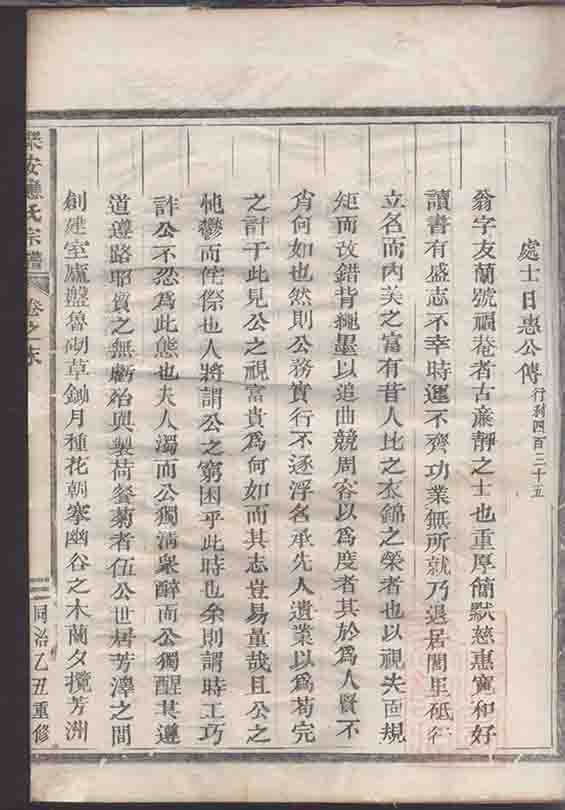 處士日惠公傳行利四百三十五
翁字友蘭號禍菴者古亷靜之士也重厚簡默慈惠寬和好
讀書有盛志不幸時運不齊功業無所就乃退居閭里砥行
立名而內美之富有昔人比之衣錦之榮者也以視夫偭規
矩而改錯背繩墨以追曲競周容以為度者其於為人賢不
肖何如也然則公務實行不逐浮名承先人遺業以為苟完
之計于此見公之視富貴為何如而其志豈易量哉且公之
忳鬱而侘傺也人將謂公之窮困乎此時也余則謂時工巧
詐公不忍為此態也夫人濁而公獨淸衆醉而公獨醒其遵
道遵路昭質之無虧殆與製荷餐菊者伍公世居芳澤之間
創建室廬盤魯湖草鋤月種花朝搴幽谷之木蘭夕攬芳洲
安戀氏宗譜
卷之末
二
同治乙丑重修